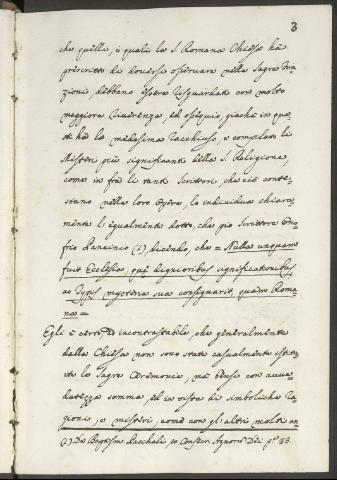 3
che quelli, i quali la S. Romana Chiesa hà
prescritto di doversi osservare nelle Sagre Fun-
zioni, debbano essere risguardati con molto
maggiore riverenza, ed ossequio, giachè in que-
sti hà la medesima racchiuso, e compilato li
Misteri più significanti della S. Religione,
come in frà li tanti Scrittori, che ciò conte-
stano nelle loro Opere, lo individua chiara-
mente l'egualmente dotto, che pio Scrittore Ono-
frio Panvinio (1), dicendo, che = Nulla unquam
fuit Ecclesia, quę dignioribus significatioribus
ac Typis mysteria sua consignarit, quam Roma-
na =
Egli è certo ed incontrastabile, che generalmente
dalla Chiesa non sono state casualmente istitu-
ite le Sagre Ceremonie, mà bensì con avve-
dutezza somma, ed in vista di simboliche ra-
gioni, o misteri, come con gl'altri molti an
(1) De Baptism. Paschali, et Consecr. Agnor. Dei pag. 33.